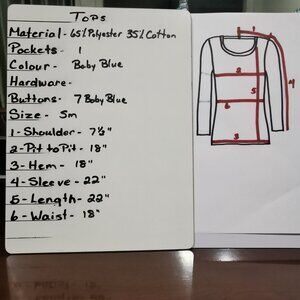 Tops
Material - 65% Polyester 35% Cotton
Pockets - 1
Colour - Baby Blue
Hardware -
Buttons - 7 Baby Blue
Size - Sm
1 - Shoulder - 7½"
2 - Pit to Pit - 18"
3 - Hem - 18"
4 - Sleeve - 22"
5 - Length - 22"
6 - Waist - 18"
1
2
5
4
6
3